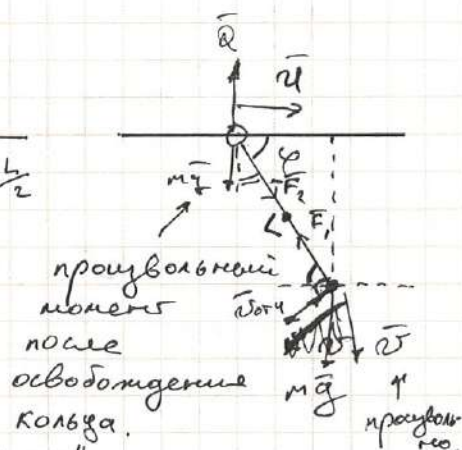 Q̄
ū
L/2
φ
mḡ
F̄₂
L
F̄₁
произвольный
момент
после
освобождения
кольца.
v̄отн
v̄
mḡ
произволь-
но.